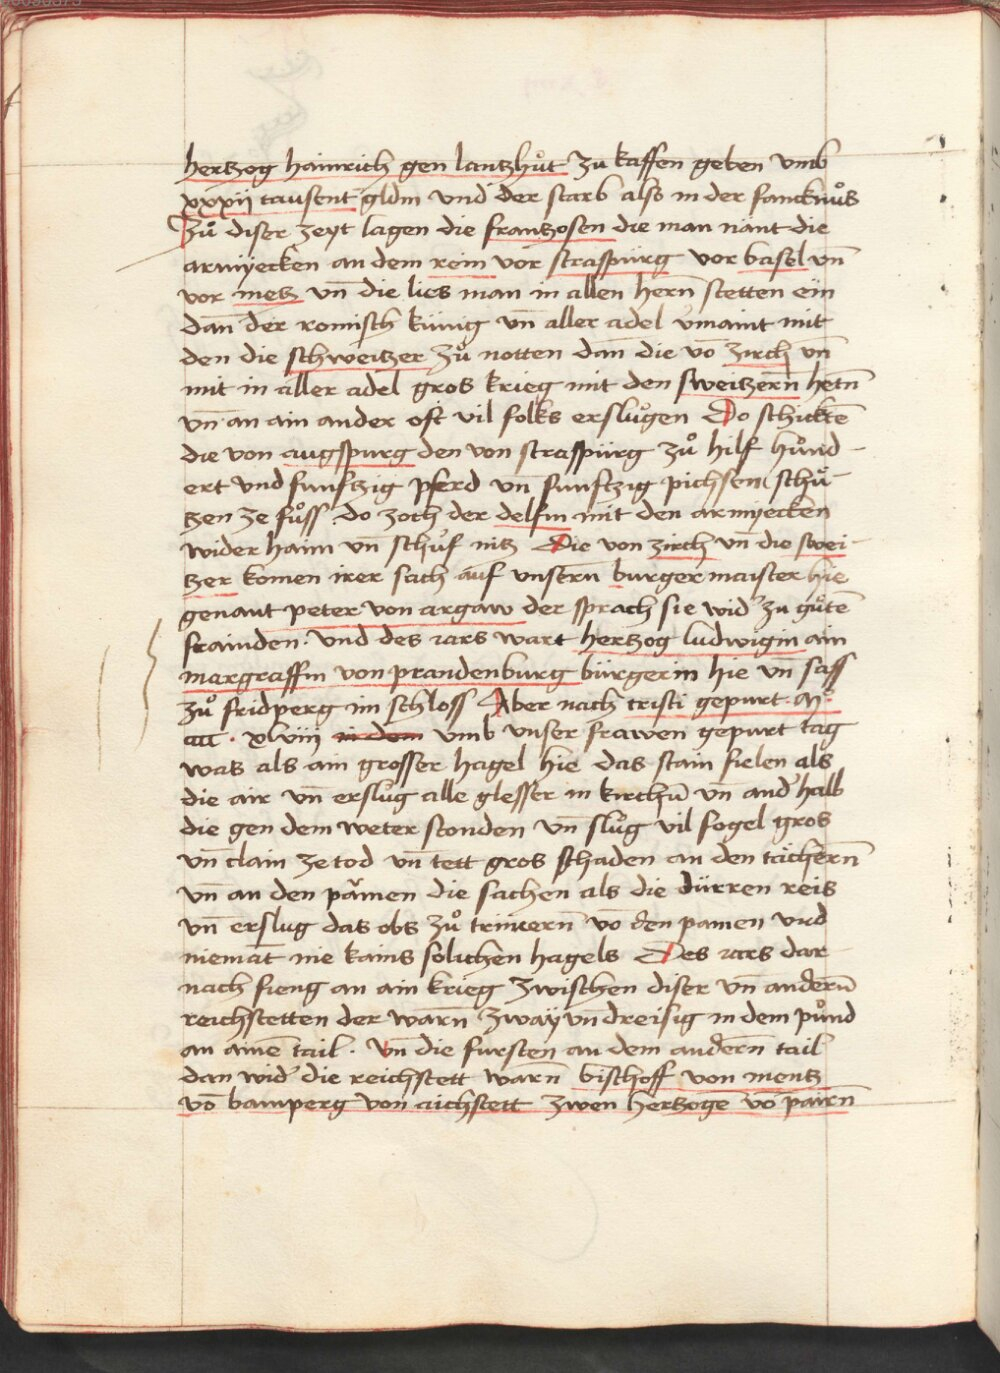 hertzog hainrich gen lantzhůt zu kaffen geben vmb
xxxij tausent gldin vnd der starb also in der fancknůs
Zů diser zeyt lagen die frantzosen die man nant die
armÿecken an dem rein vor straspürg vor basel vn̄
vor metz vn̄ die lies man in allen hern̄ stetten ein
dan̄ der romisch künig vn̄ aller adel vmaint mit
den die schweitzer zů notten dan̄ die vō zirch vn̄
mit in aller adel gros krieg mit den sweitzern̄ hetn̄
vn̄ an ain ander oft vil folks erslugen Do schicktē
die von augspurg den von straspürg zů hilf hůnd
ert vnd funftzig pferd vn̄ funftzig pichsen schü
tzen ze fůss do zoch der delfin mit den armÿecken
wider haim vn̄ schůf nitz Die von zirch vn̄ die swei
tzer komen irer sach auf vnsern̄ burgermaister hie
genant peter von argaw der sprach sie wid zu gůtē
frainden. vnd des iars wart hertzog ludwigin ain
margraffin von prandenburg bürgerin hie vn̄ sass
zů fridperg im schloss Aber nach cristi gepurt . M
cccc . xlviij in dem vmb vnser frawen gepurt tag
was als ain grosser hagel hie das stain fielen als
die air vn̄ erslůg alle glesser in kirchn̄ vn̄ and halb
die gen dem weter stonden vn̄ slůg vil fogel gros
vn̄ clain ze tod vn̄ tett gros schaden an den tächern̄
vn̄ an den pämen die sachen als die dürren reis
vn̄ erslug das obs zů trimern̄ vō den pamen vnd
niemāt nie kains solichen hagels Des iars dar
nach fieng an ain krieg zwischen diser vn̄ andern̄
reichstetten der warn̄ zwaÿ vn̄ dreisig in dem půnd
an ainē tail . Vn̄ die fursten an dem andern̄ tail
dan wid die reichstett warn̄ bischoff von mentz
vō bamperg von aichstett zwen hertzoge vō pairn̄